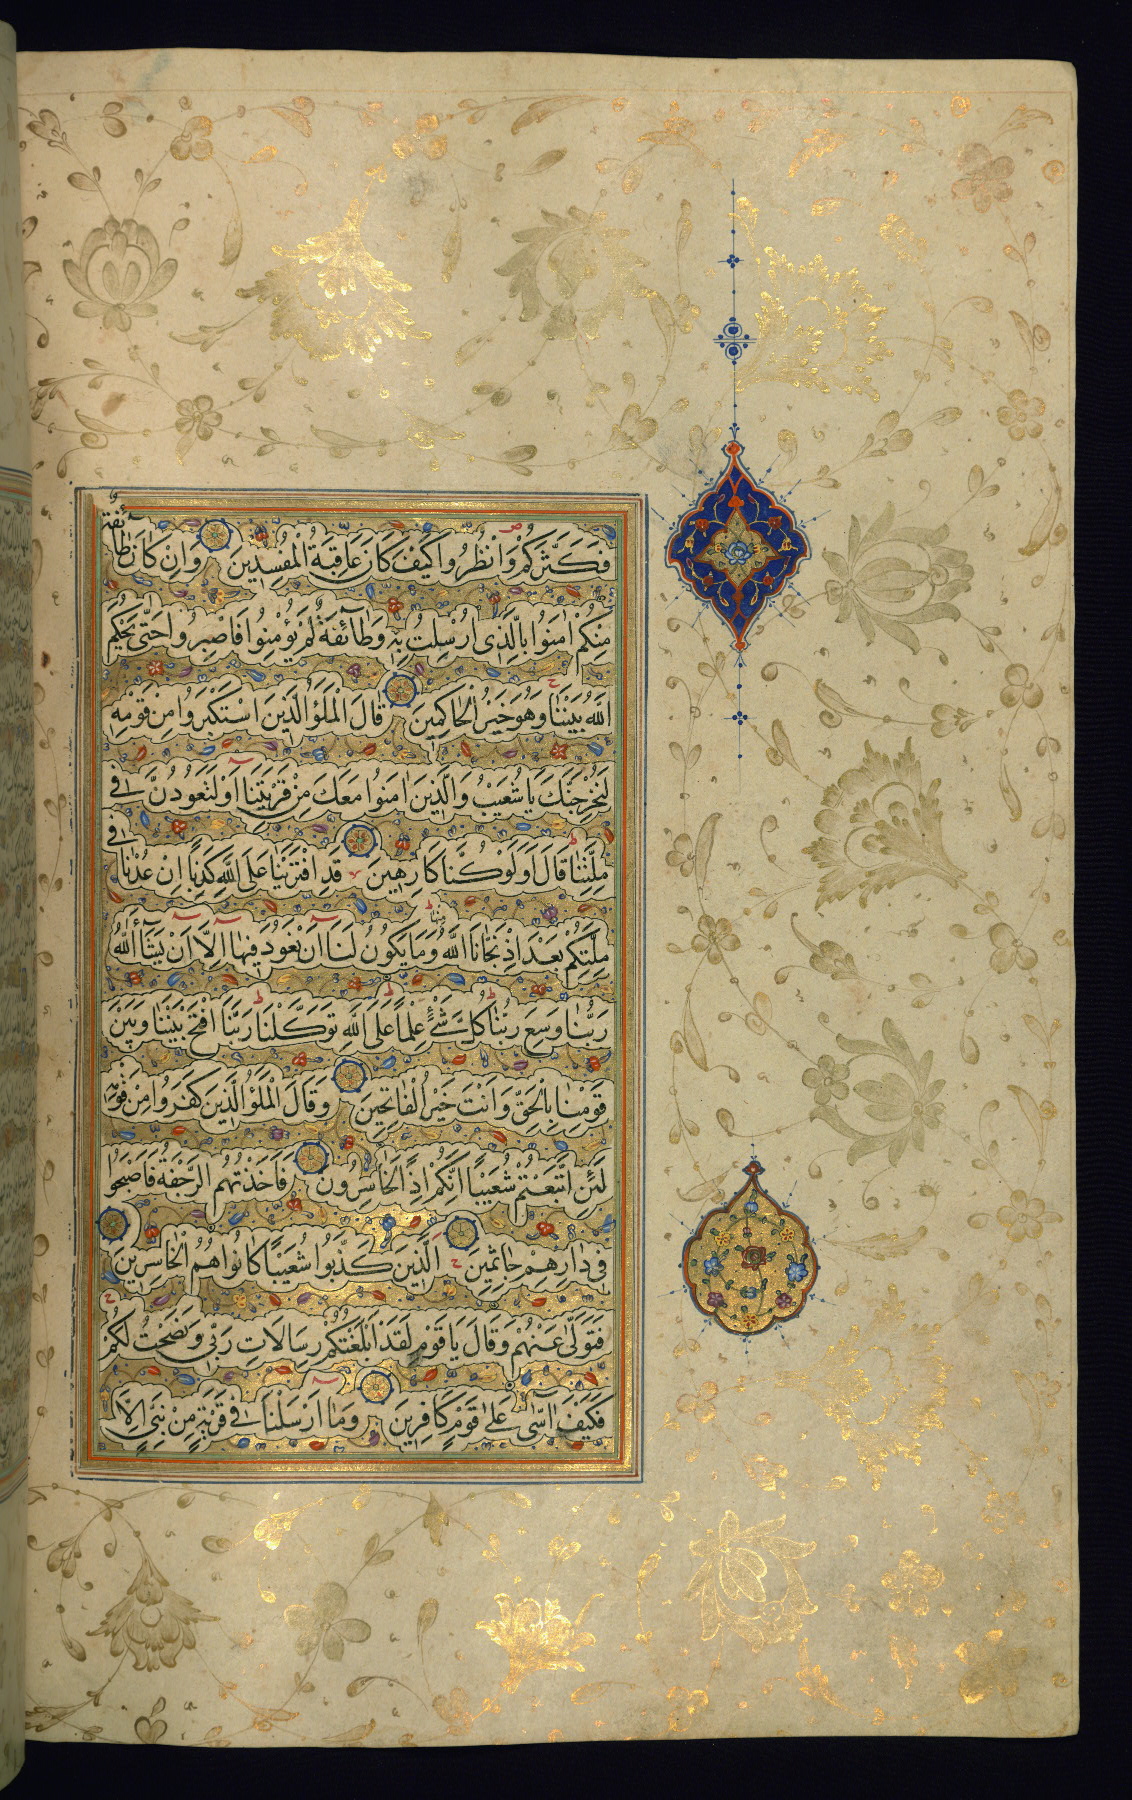 فَكَثَّرَكُمْ وَانْظُرُوا كَيْفَ كَانَ عَاقِبَةُ الْمُفْسِدِينَ وَاِنْ كَانَ طَآئِفَةٌ
مِنْكُمْ اٰمَنُوا بِالَّذِى اُرْسِلْتُ بِهِ وَطَآئِفَةٌ لَمْ يُؤْمِنُوا فَاصْبِرُوا حَتّٰى يَحْكُمَ
اللّٰهُ بَيْنَنَا وَهُوَ خَيْرُ الْحَاكِمِينَ قَالَ الْمَلَؤُ الَّذِينَ اسْتَكْبَرُوا مِنْ قَوْمِهِ
لَنُخْرِجَنَّكَ يَا شُعَيْبُ وَالَّذِينَ اٰمَنُوا مَعَكَ مِنْ قَرْيَتِنَا اَوْ لَتَعُودُنَّ فِى
مِلَّتِنَا قَالَ اَوَلَوْ كُنَّا كَارِهِينَ قَدِ افْتَرَيْنَا عَلَى اللّٰهِ كَذِبًا اِنْ عُدْنَا فِى
مِلَّتِكُمْ بَعْدَ اِذْ نَجّٰنَا اللّٰهُ مِنْهَا وَمَا يَكُونُ لَنَا اَنْ نَعُودَ فِيهَا اِلَّا اَنْ يَشَآءَ اللّٰهُ
رَبُّنَا وَسِعَ رَبُّنَا كُلَّ شَىْءٍ عِلْمًا عَلَى اللّٰهِ تَوَكَّلْنَا رَبَّنَا افْتَحْ بَيْنَنَا وَبَيْنَ
قَوْمِنَا بِالْحَقِّ وَاَنْتَ خَيْرُ الْفَاتِحِينَ وَقَالَ الْمَلَؤُ الَّذِينَ كَفَرُوا مِنْ قَوْمِهِ
لَئِنِ اتَّبَعْتُمْ شُعَيْبًا اِنَّكُمْ اِذًا لَخَاسِرُونَ فَاَخَذَتْهُمُ الرَّجْفَةُ فَاَصْبَحُوا
فِى دَارِهِمْ جَاثِمِينَ اَلَّذِينَ كَذَّبُوا شُعَيْبًا كَانُوا هُمُ الْخَاسِرِينَ
فَتَوَلّٰى عَنْهُمْ وَقَالَ يَا قَوْمِ لَقَدْ اَبْلَغْتُكُمْ رِسَالَاتِ رَبِّى وَنَصَحْتُ لَكُمْ
فَكَيْفَ اٰسٰى عَلٰى قَوْمٍ كَافِرِينَ وَمَا اَرْسَلْنَا فِى قَرْيَةٍ مِنْ نَبِىٍّ اِلَّا